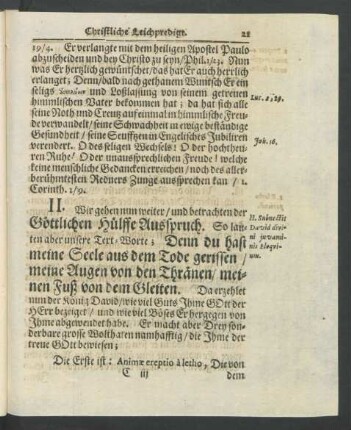 Christliche Leichpredigt. 21
19/4. Er verlangte mit dem heiligen Apostel Paulo
abzuscheiden und bey Christo zu seyn/Phil.1/23. Nun
was Er hertzlich gewüntschet/das hat Er auch herrlich
erlanget; Denn/bald nach gethanem Wuntsch Er ein
seligs und Loßlassung von seinem getreuen
himmlischen Vater bekommen hat; da hat sich alle
seine Noth und Creutz auf einmal in himmlische Freu-
de verwandelt/seine Schwachheit in ewige beständige
Gesundheit/seine Seufftzen in Engelisches Jubiliren
verendert. O des seligen Wechsels! O der hochtheu-
ren Ruhe! O der unaussprechlichen Freude! welche
keine menschliche Gedancken erreichen/noch des aller-
berühmtesten Redners Zunge aussprechen kan/1.
Corinth. 2/9.
Luc. 2, 29.
Joh. 16.
II. Wir gehen nun weiter/und betrachten der
Göttlichen Hülffe Ausspruch. So lau-
ten aber unsere Text-Worte; Denn du hast
meine Seele aus dem Tode gerissen/
meine Augen von den Thränen/mei-
nen Fuß von dem Gleiten. Da erzehlet
nun der König David/wie viel Guts Ihme GOtt der
HErr bezeiget/und wie viel Böses Er hergegen von
Ihme abgewendet habe. Er macht aber Drey son-
derbare grosse Wolthaten namhafftig/die Ihme der
treue GOtt bewiesen;
II. Subnectit
David divi-
ni juvami-
nis Eloqui-
um.
Die Erste ist: Animæ ereptio à letho, Die von
C iij dem